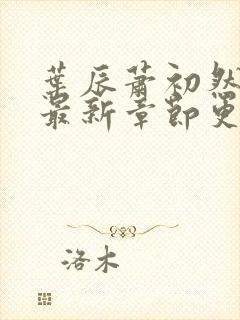 叶辰萧初然
最新章节更
洛木